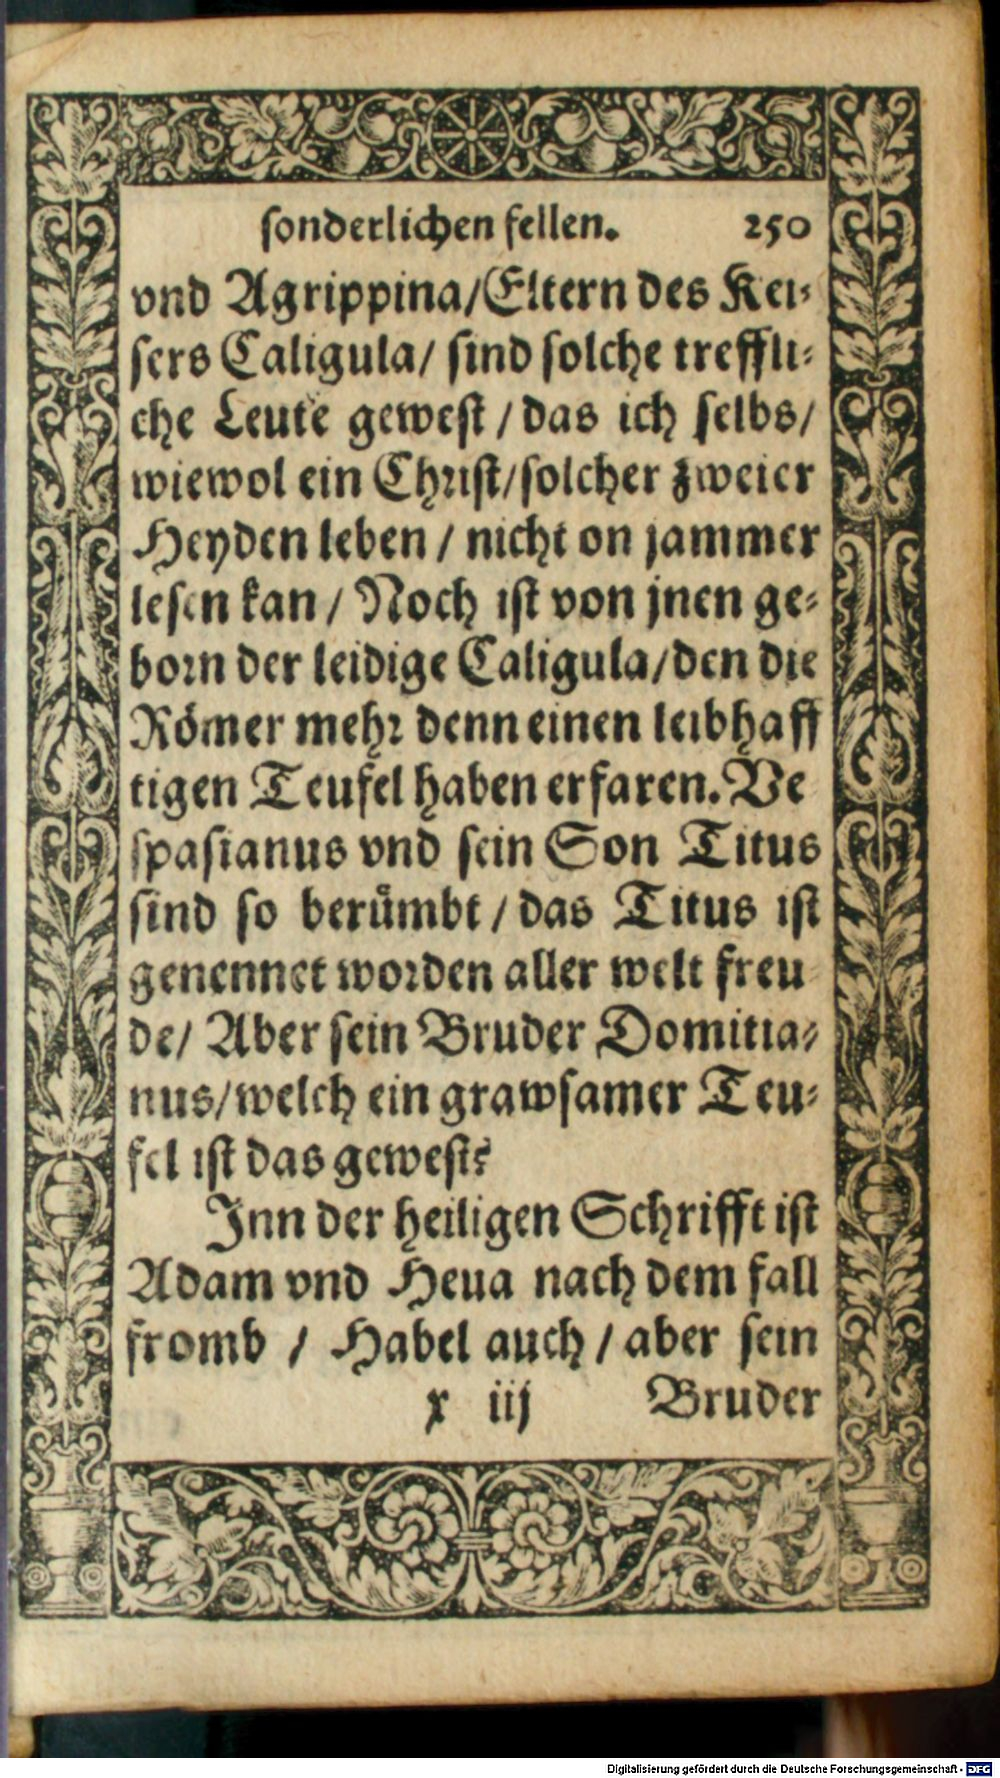 sonderlichen fellen. 250
vnd Agrippina/Eltern des Kei-
sers Caligula/ sind solche treffli-
che Leute gewest / das ich selbs/
wiewol ein Christ/solcher zweier
Heyden leben / nicht on jammer
lesen kan / Noch ist von jnen ge-
born der leidige Caligula/den die
Römer mehr denn einen leibhaff
tigen Teufel haben erfaren. Ve
spasianus vnd sein Son Titus
sind so berůmbt / das Titus ist
genennet worden aller welt freu
de/ Aber sein Bruder Domitia-
nus/welch ein grawsamer Teu-
fel ist das gewest?
Inn der heiligen Schrifft ist
Adam vnd Heua nach dem fall
fromb / Habel auch / aber sein
x iij Bruder
Digitalisierung gefördert durch die Deutsche Forschungsgemeinschaft - DFG